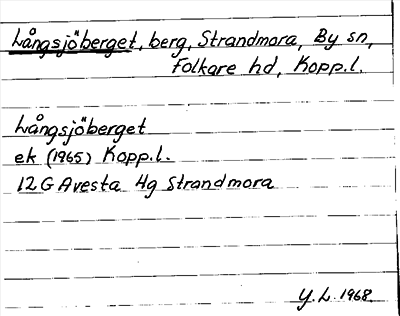 Långsjöberget, berg, Strandmora, By sn,
Folkare hd, Kopp.l.
Långsjöberget
ek (1965) Kopp.l.
12 G Avesta 4g Strandmora
Y.L. 1968